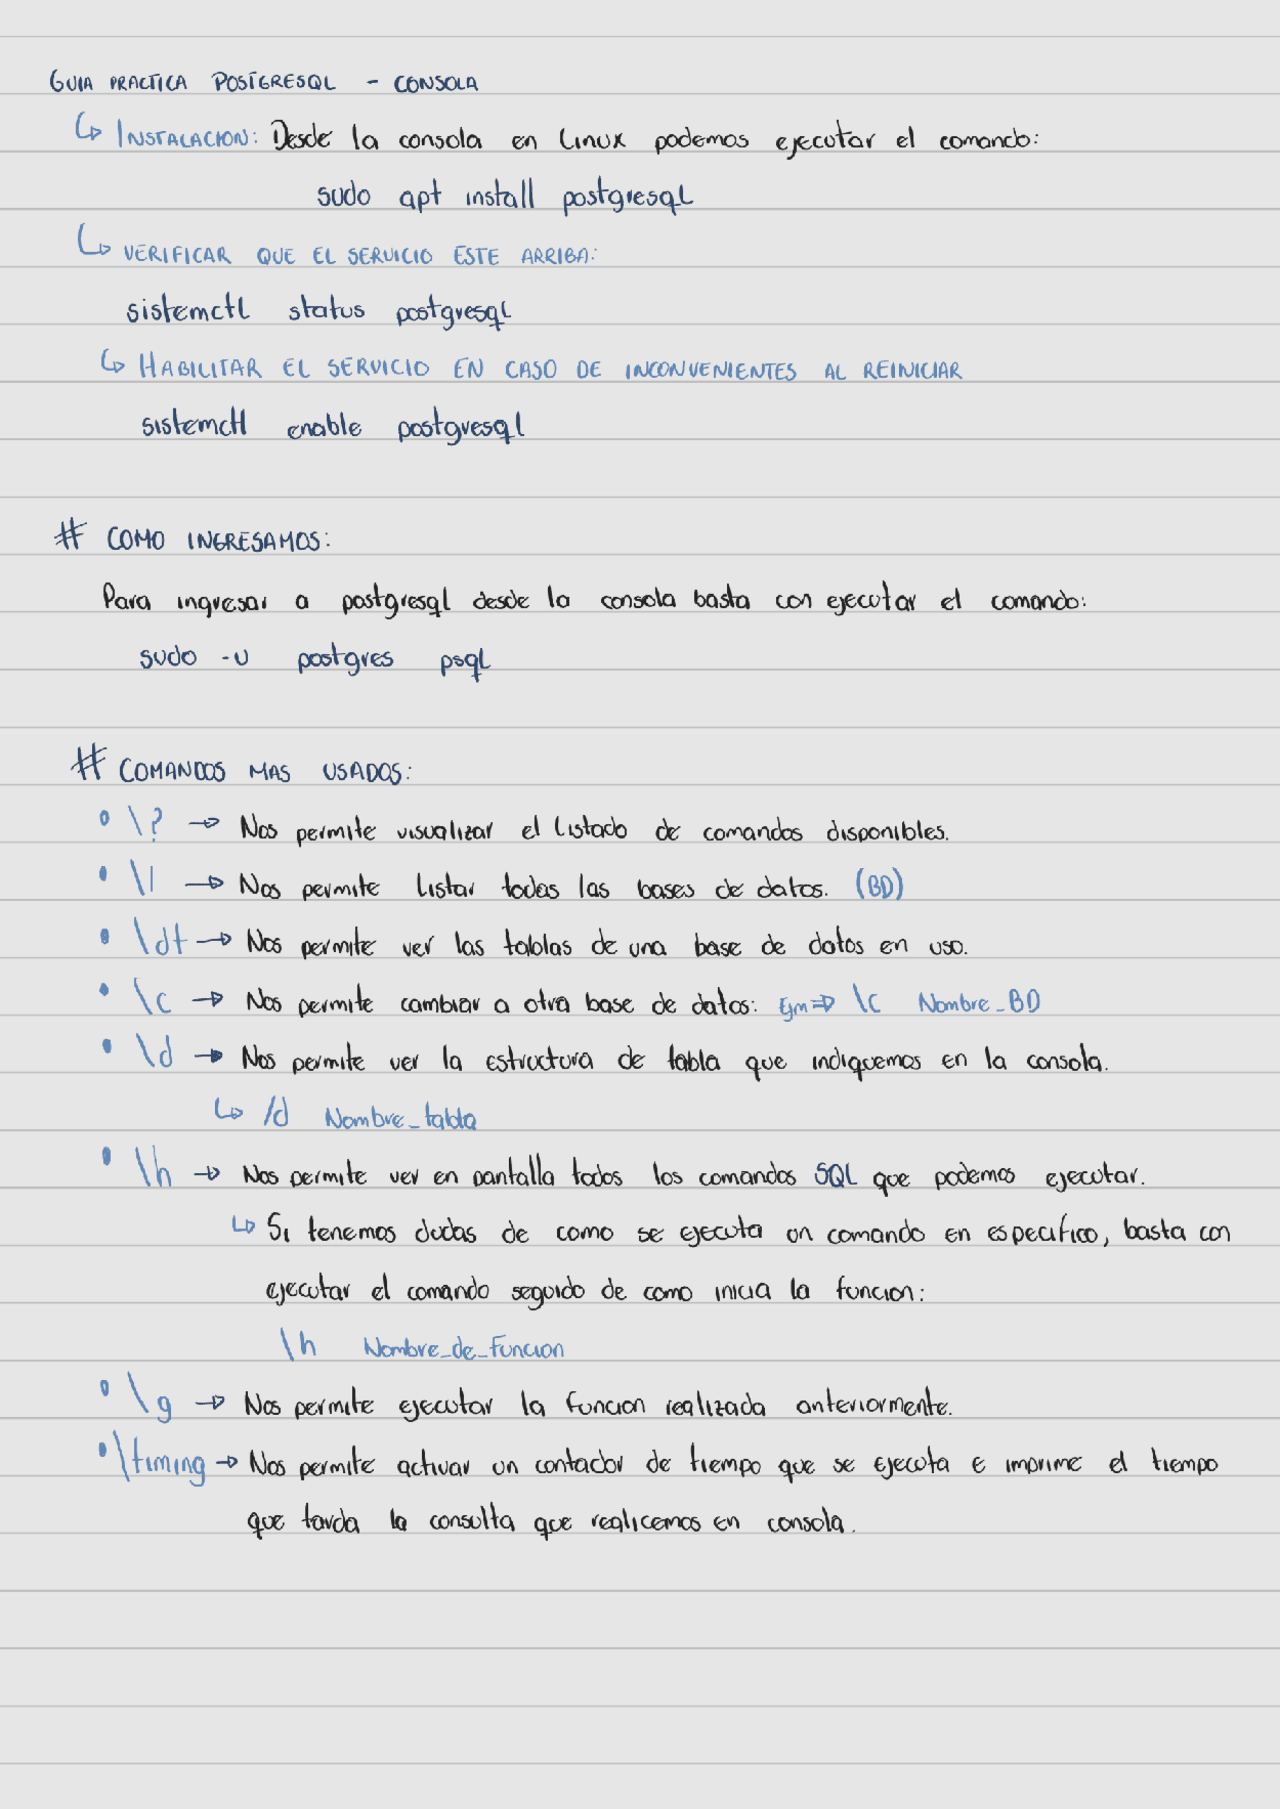 GUIA PRACTICA POSTGRESQL - CONSOLA
↳ INSTALACION: Desde la consola en Linux podemos ejecutar el comando:
sudo apt install postgresql
↳ VERIFICAR QUE EL SERVICIO ESTE ARRIBA:
sistemctl status postgresql
↳ HABILITAR EL SERVICIO EN CASO DE INCONVENIENTES AL REINICIAR
sistemctl enable postgresql
# COMO INGRESAMOS:
Para ingresar a postgresql desde la consola basta con ejecutar el comando:
sudo -u postgres psql
# COMANDOS MAS USADOS:
• \? → Nos permite visualizar el listado de comandos disponibles.
• \l → Nos permite listar todas las bases de datos. (BD)
• \dt → Nos permite ver las tablas de una base de datos en uso.
• \c → Nos permite cambiar a otra base de datos: Ejm ⇒ \c Nombre_BD
• \d → Nos permite ver la estructura de tabla que indiquemos en la consola.
↳ /d Nombre_tabla
• \h → Nos permite ver en pantalla todos los comandos SQL que podemos ejecutar.
↳ Si tenemos dudas de como se ejecuta un comando en especifico, basta con
ejecutar el comando seguido de como inicia la funcion:
\h Nombre_de_Funcion
• \g → Nos permite ejecutar la funcion realizada anteriormente.
• \timing → Nos permite activar un contador de tiempo que se ejecuta e imprime el tiempo
que tarda la consulta que realicemos en consola.